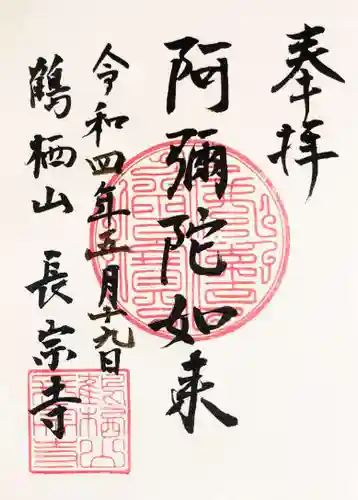 奉拝
阿彌陀如来
令和四年五月十九日
鶴栖山 長宗寺